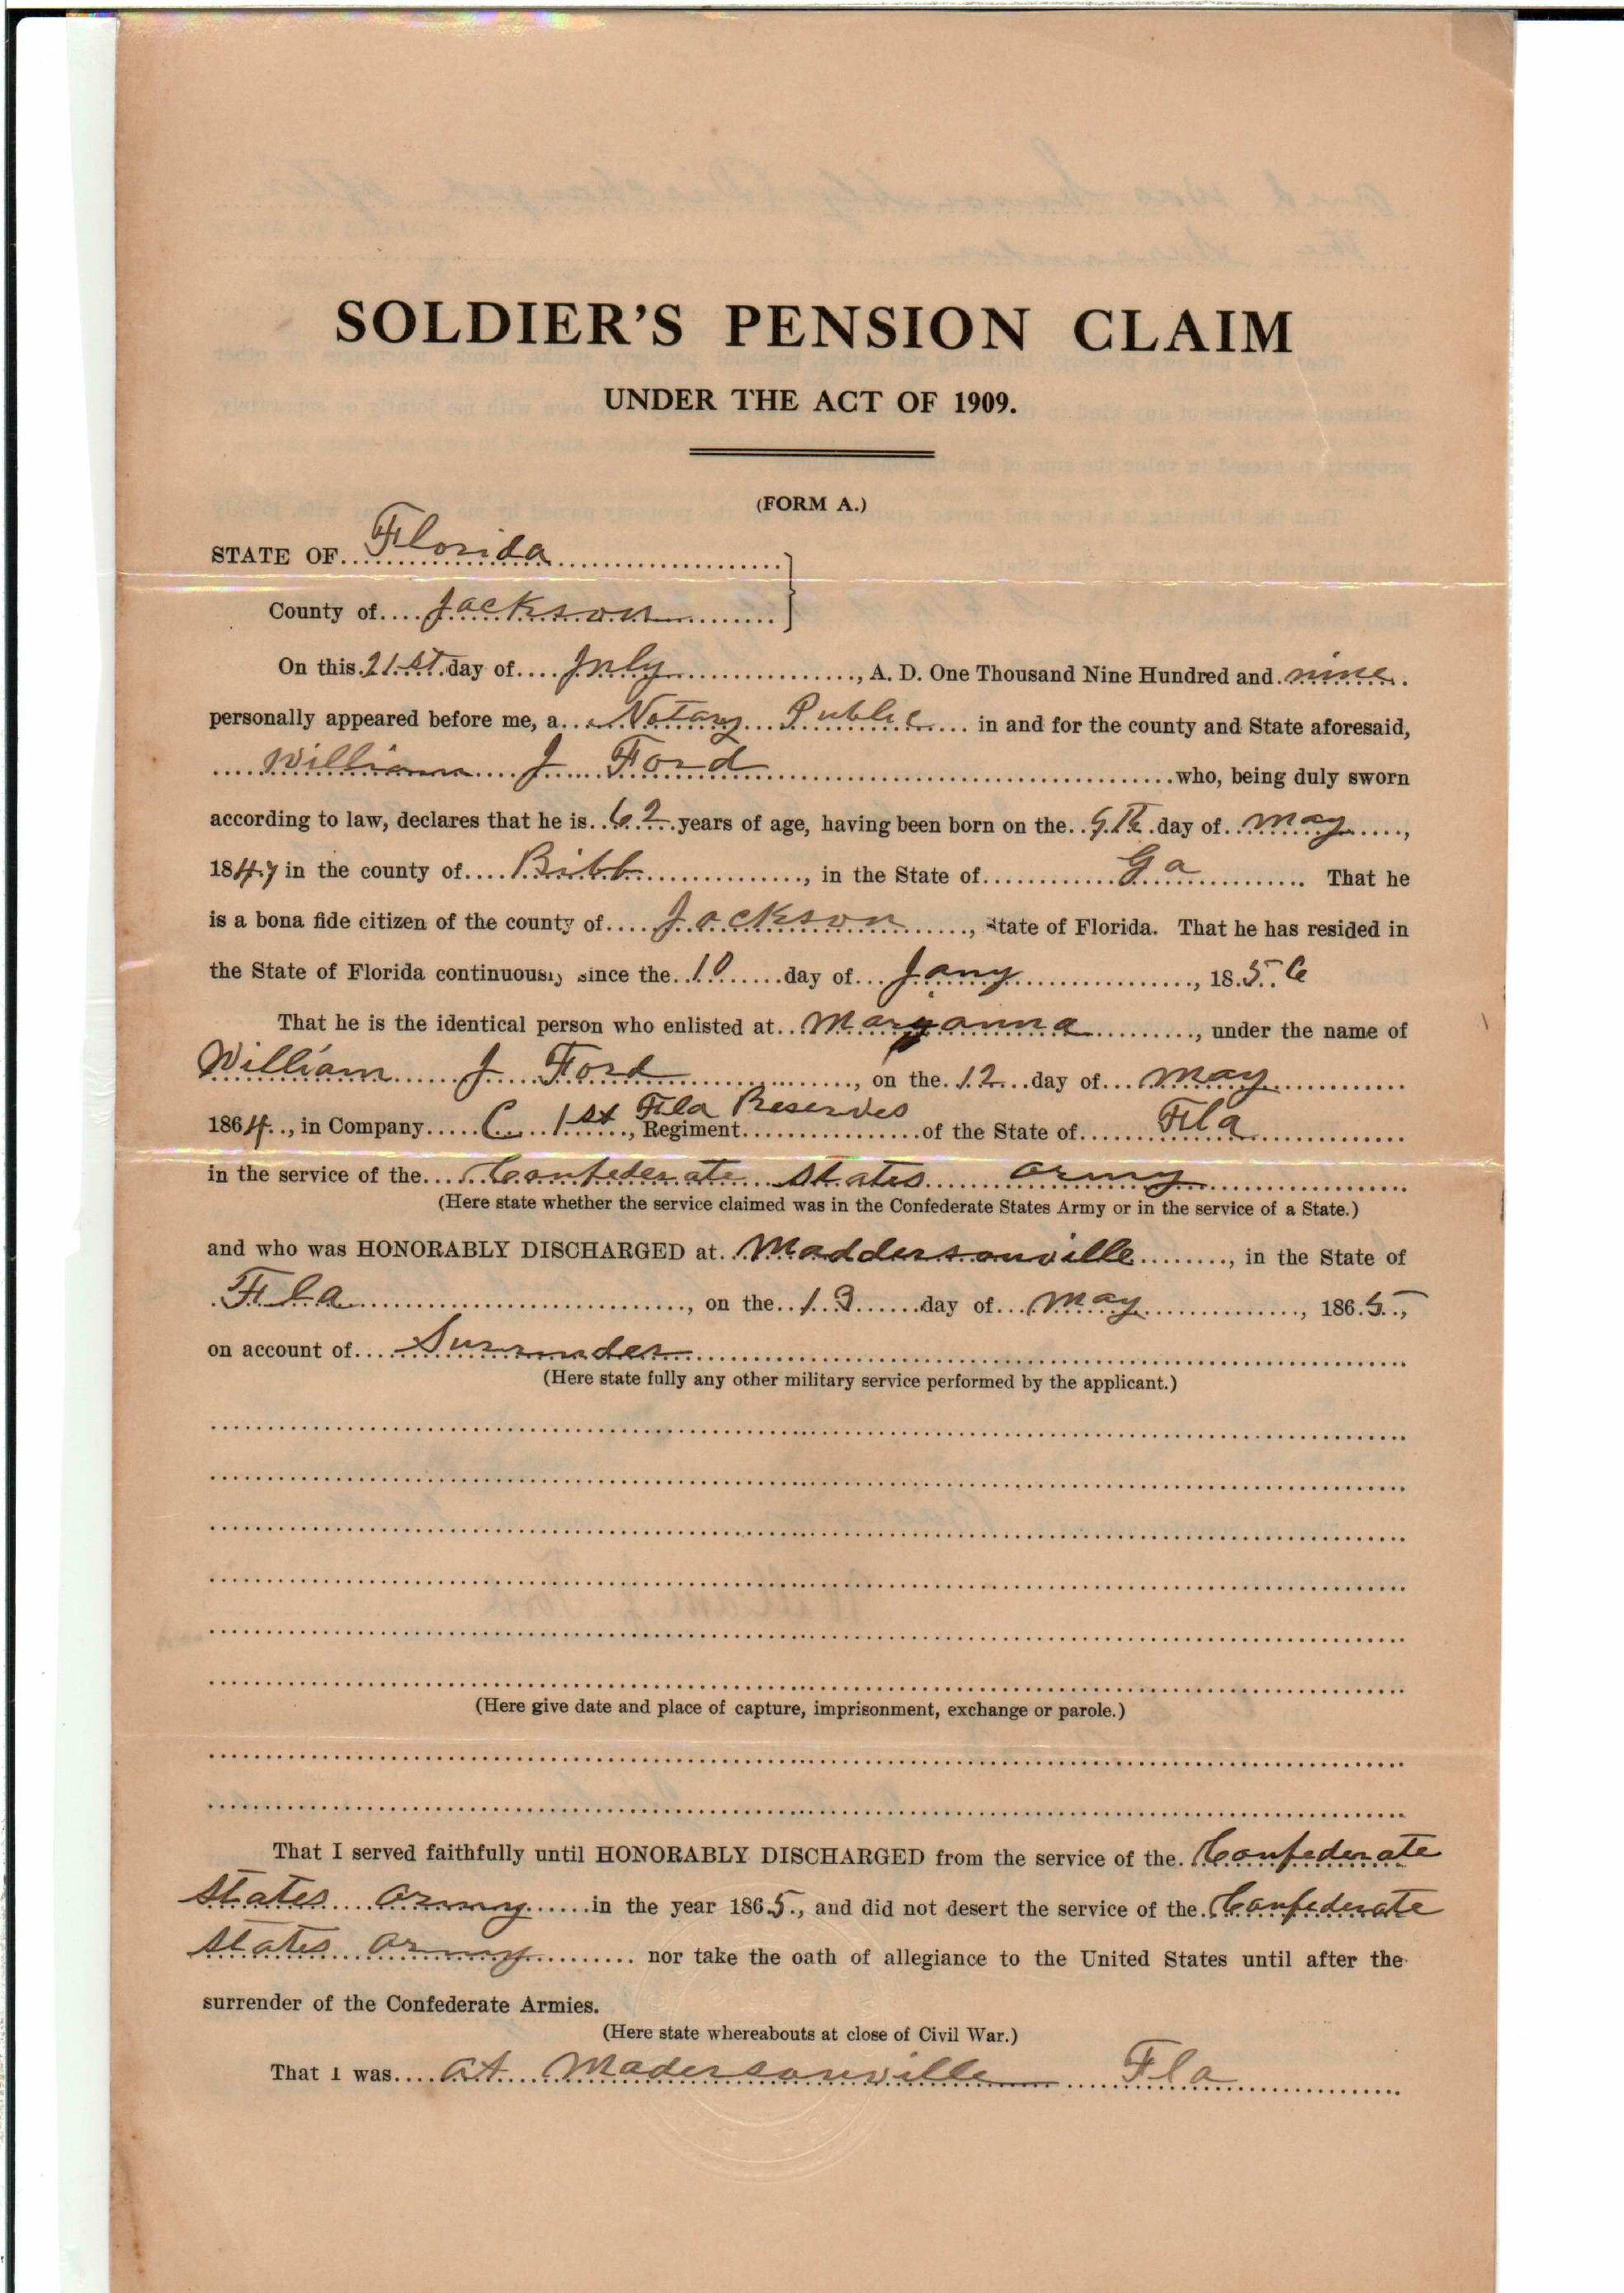 SOLDIER'S PENSION CLAIM
UNDER THE ACT OF 1909.
(FORM A.)
STATE OF Florida
County of Jackson
On this 21st day of July, A. D. One Thousand Nine Hundred and nine
personally appeared before me, a Notary Public in and for the county and State aforesaid,
William J Ford who, being duly sworn
according to law, declares that he is 62 years of age, having been born on the day of May,
1847 in the county of Bibb, in the State of Ga That he
is a bona fide citizen of the county of Jackson, State of Florida. That he has resided in
the State of Florida continuously since the 10 day of Jany, 1856
That he is the identical person who enlisted at Maryanna, under the name of
William J Ford, on the 12 day of May
1864, in Company C 1st, Regiment Fla Reserves of the State of Fla
in the service of the Confederate States Army
(Here state whether the service claimed was in the Confederate States Army or in the service of a State.)
and who was HONORABLY DISCHARGED at Maddersonville, in the State of
Fla, on the 13 day of May, 1865,
on account of Surrender
(Here state fully any other military service performed by the applicant.)
(Here give date and place of capture, imprisonment, exchange or parole.)
That I served faithfully until HONORABLY DISCHARGED from the service of the Confederate
States Army in the year 1865, and did not desert the service of the Confederate
States Army nor take the oath of allegiance to the United States until after the
surrender of the Confederate Armies.
(Here state whereabouts at close of Civil War.)
That I was at Madersonville Fla